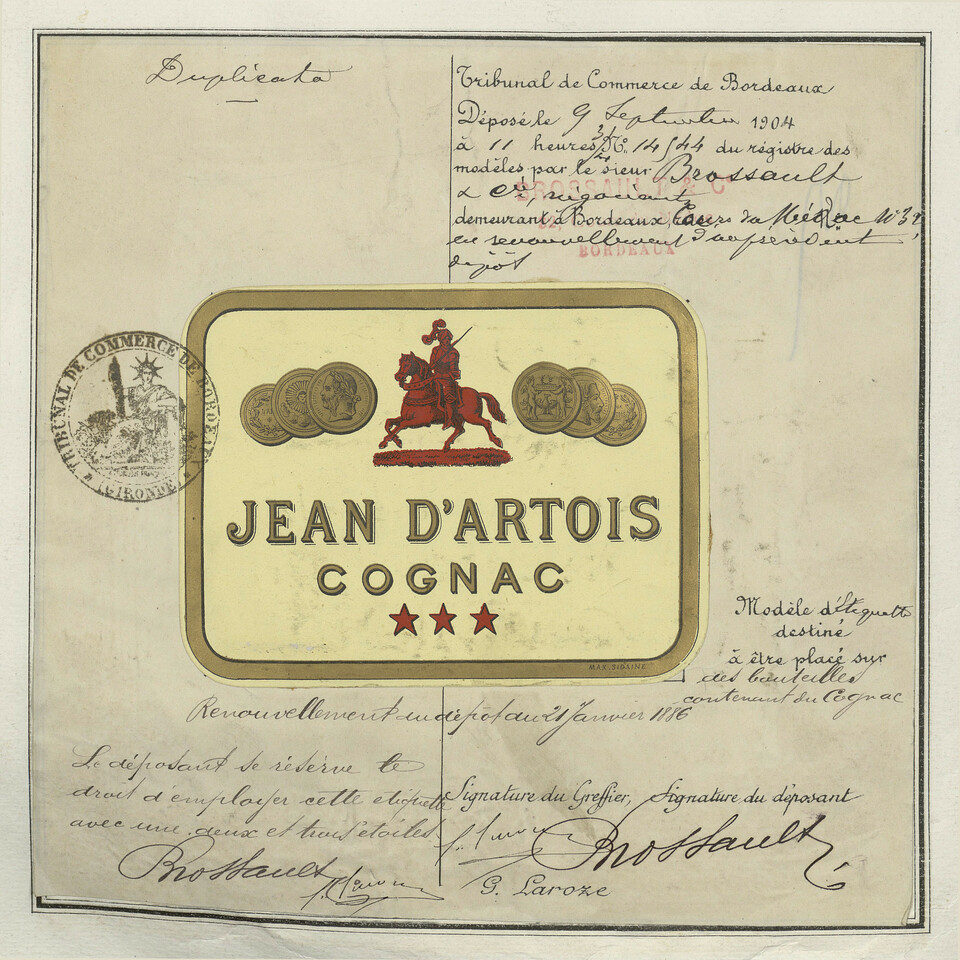 Duplicata
Tribunal de Commerce de Bordeaux
Déposé le 9 Septembre 1904
à 11 heures 3/4 No. 14544 du régistre des
modèles par le sieur Brossault
& Cie, négociant
demeurant à Bordeaux, Cours du Médoc No 32
en renouvellement d'un précédent
dépôt
BROSSAULT & Co
BORDEAUX
TRIBUNAL DE COMMERCE DE BORDEAUX
(GIRONDE)
JEAN D'ARTOIS
COGNAC
MAX. SIDAINE
Modèle d'Etiquette
destiné
à être placé sur
des bouteilles
contenant du Cognac
Renouvellement du dépôt du 21 Janvier 1886
Le déposant se réserve le
droit d'employer cette étiquette
avec une, deux et trois étoiles
Brossault
Signature du Greffier, Signature du déposant
Brossault
G. Laroze